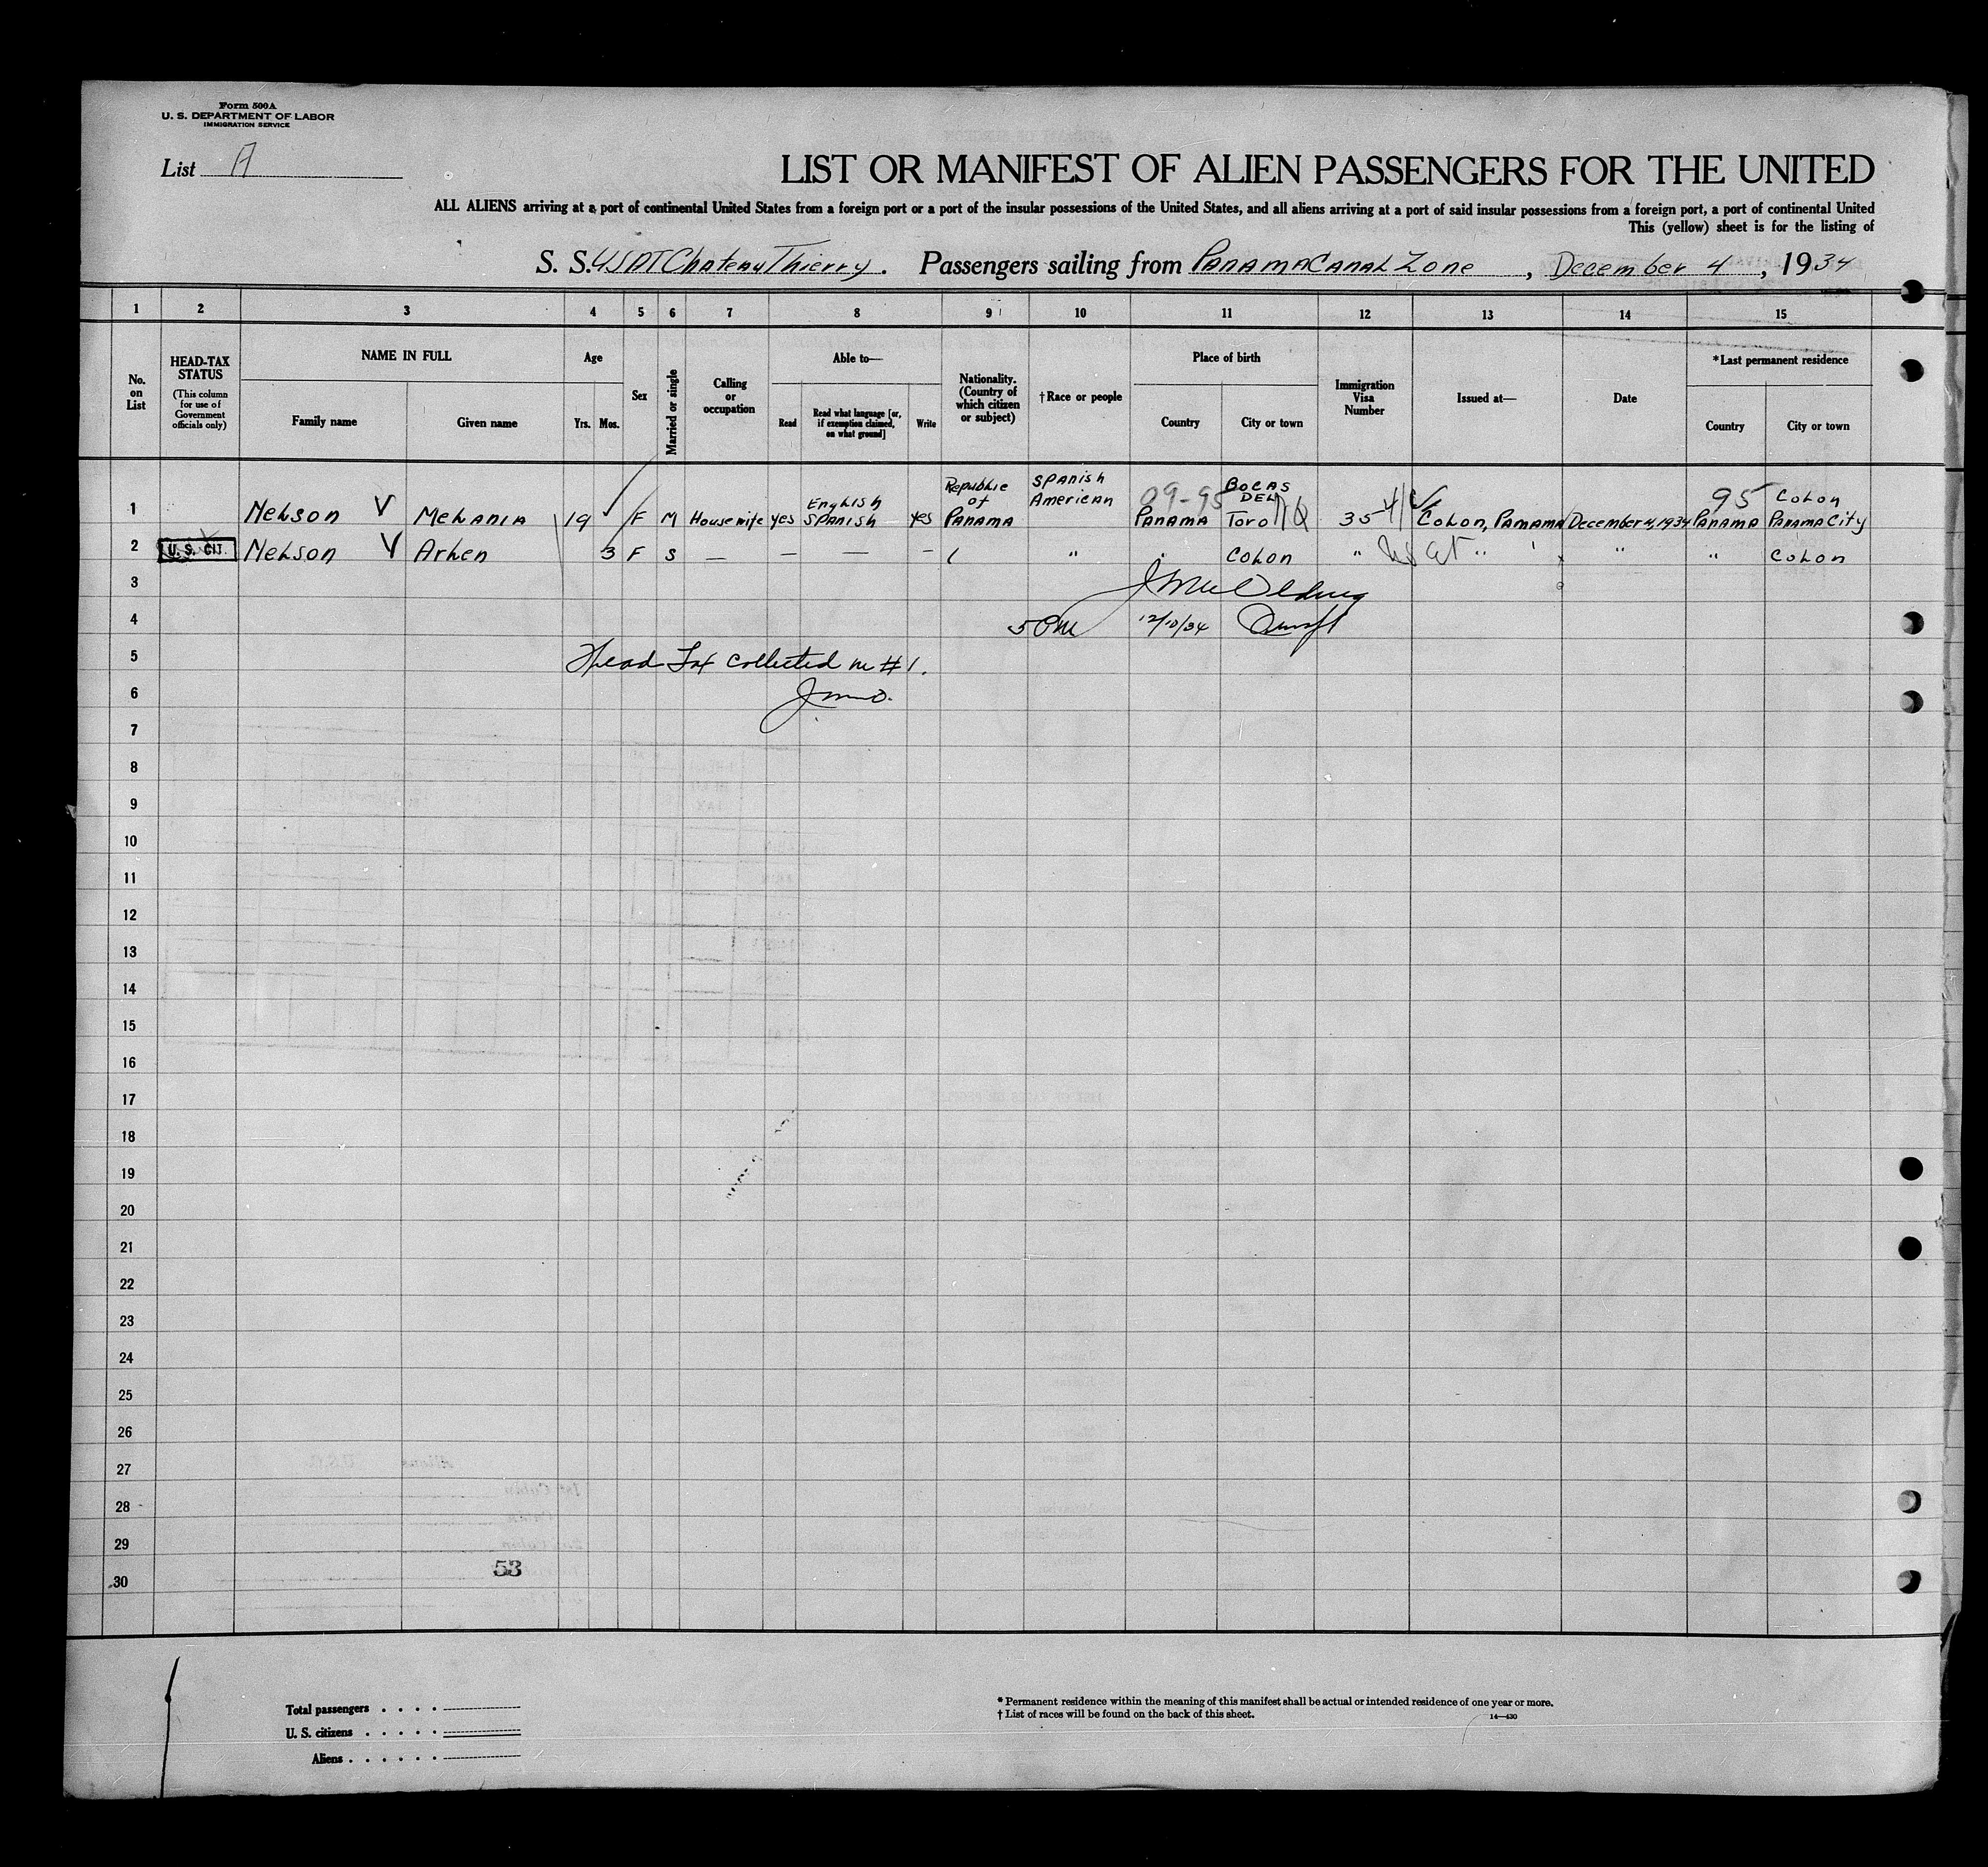 Form 500A
U. S. DEPARTMENT OF LABOR
IMMIGRATION SERVICE
List A
LIST OR MANIFEST OF ALIEN PASSENGERS FOR THE UNITED
ALL ALIENS arriving at a port of continental United States from a foreign port or a port of the insular possessions of the United States, and all aliens arriving at a port of said insular possessions from a foreign port, a port of continental United
This (yellow) sheet is for the listing of
S. S. USAT Chateau Thierry. Passengers sailing from Panama Canal Zone, December 4, 1934
1 2 3 4 5 6 7 8 9 10 11 12 13 14 15
No. on List
HEAD-TAX STATUS
(This column for use of Government officials only)
NAME IN FULL
Family name Given name
Age
Yrs. Mos.
Sex
Married or single
Calling or occupation
Able to—
Read
Read what language [or, if exemption claimed, on what ground]
Write
Nationality. (Country of which citizen or subject)
† Race or people
Place of birth
Country City or town
Immigration Visa Number
Issued at—
Date
* Last permanent residence
Country City or town
1 Nelson V Melania 19 F M Housewife yes English Spanish yes Republic of Panama Spanish American 09-95 Panama Bocas Del Toro NQ 35 Colon, Panama December 4, 1934 95 Panama Colon Panama City
2 U. S. CIT. Nelson V Arlen 3 F S — — — — " Colon " " " " Colon
3
4 5 PM 12/10/34
5 Head Tax collected on #1.
6 JMMcO.
7
8
9
10
11
12
13
14
15
16
17
18
19
20
21
22
23
24
25
26
27
28
29
53
30
Total passengers
U. S. citizens
Aliens
* Permanent residence within the meaning of this manifest shall be actual or intended residence of one year or more.
† List of races will be found on the back of this sheet.
14—430